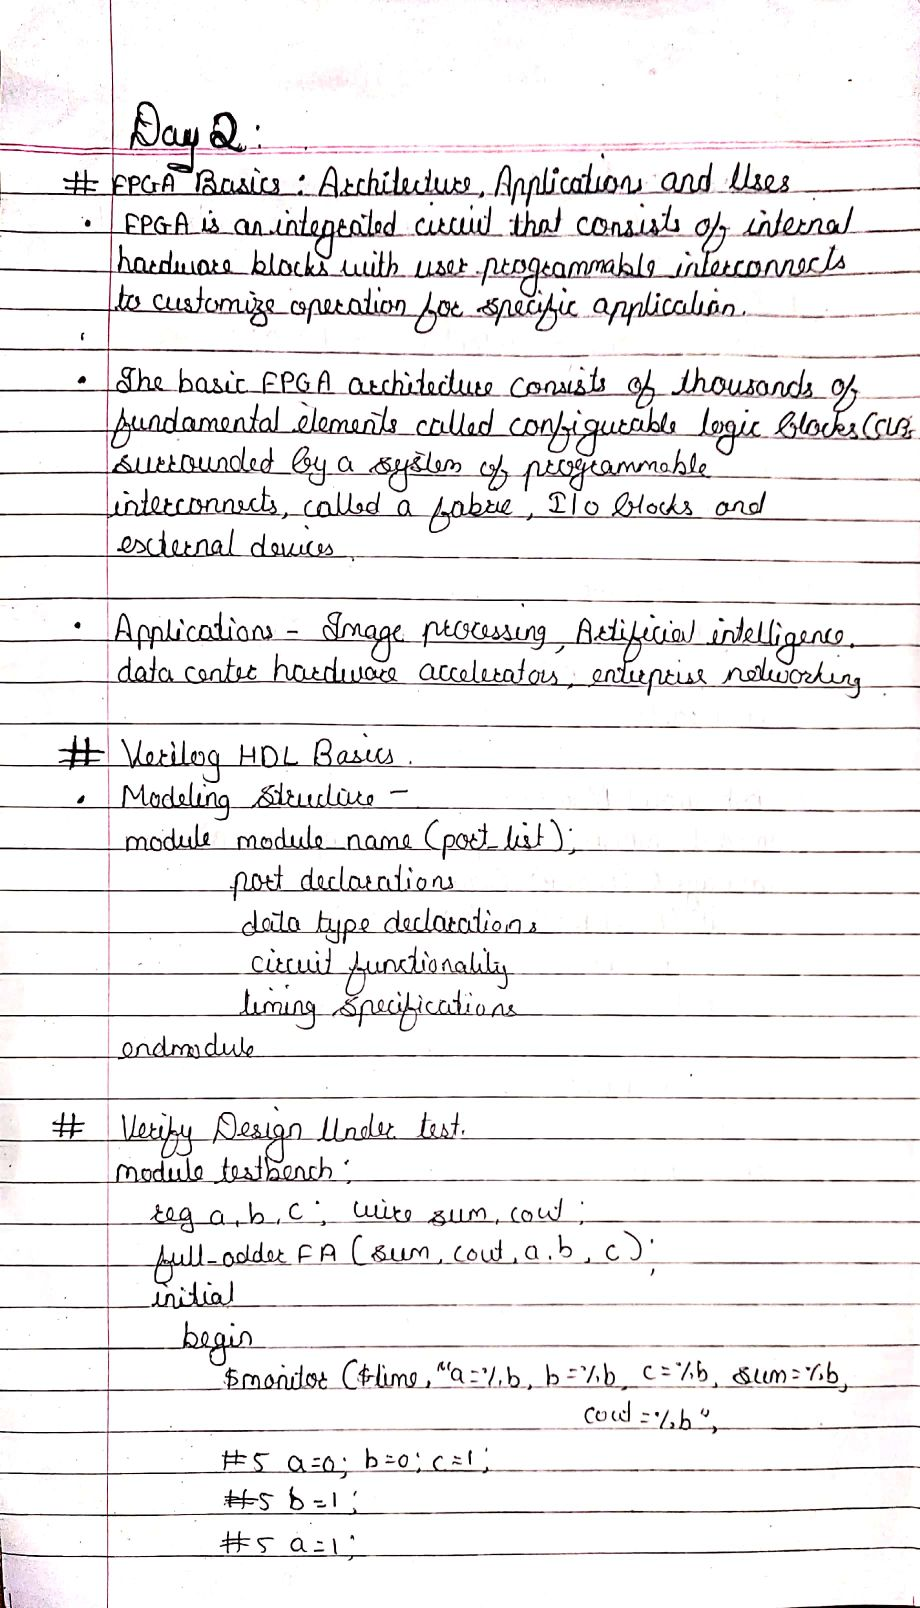 Day 2:
# FPGA Basics : Architecture, Applications and Uses
• FPGA is an integrated circuit that consists of internal
hardware blocks with user programmable interconnects
to customize operation for specific application.
• The basic FPGA architecture consists of thousands of
fundamental elements called configurable logic blocks (CLBs
surrounded by a system of programmable
interconnects, called a fabric, I/O blocks and
external devices.
• Applications - Image processing, Artificial intelligence,
data center hardware accelerators, enterprise networking
# Verilog HDL Basics.
• Modeling Structure -
module module name (port_list);
port declarations
data type declarations
circuit functionality
timing specifications
endmodule
# Verify Design Under test.
module testbench;
reg a, b, c; wire sum, cout;
full-adder FA (sum, cout, a, b, c);
initial
begin
$monitor ($time, "a=%b, b=%b, c=%b, sum=%b,
cout=%b",
#5 a=0; b=0; c=1;
#5 b=1;
#5 a=1;